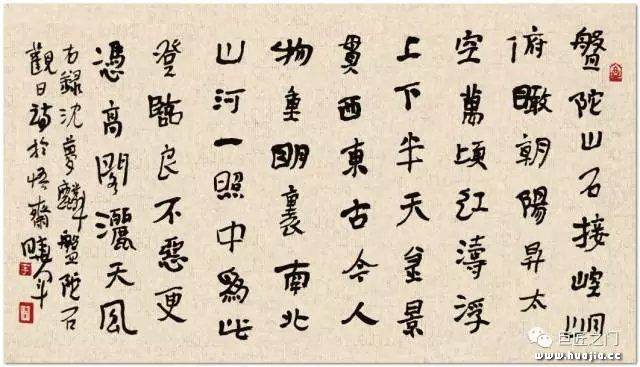 盤陀山石接崆峒
俯瞰朝陽昇太
空萬頃紅濤浮
上下半天金景
貫西東古今人
物重明裏南北
山河一照中爲此
登臨良不惡更
憑高閣灑天風
右錄沈夢麟盤陀石
觀日詩於悟齋
巨匠之门
www.huajia.cc